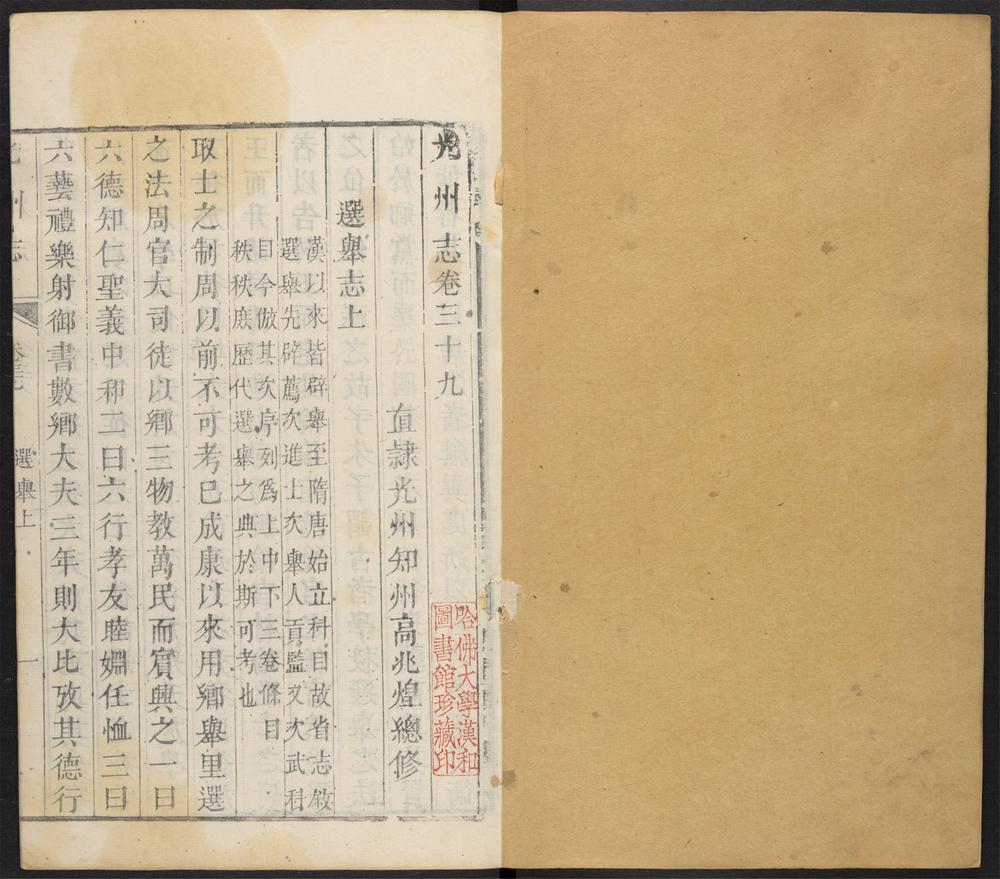 光州志卷三十九
直隸光州知州高兆煌總修
選舉志上
漢以來皆辟舉至隋唐始立科目故省志敘
選舉先辟薦次進士次舉人貢監又次武科
目今倣其次序列爲上中下三卷條目
秩秩庻歷代選舉之典於斯可考也
取士之制周以前不可考已成康以來用鄉舉里選
之法周官大司徒以鄉三物教萬民而賓興之一曰
六德知仁聖義中和二曰六行孝友睦婣任恤三曰
六藝禮樂射御書數鄉大夫三年則大比攷其德行
光州志
卷三十九
選舉上
一
哈佛大學漢和
圖書館珍藏印